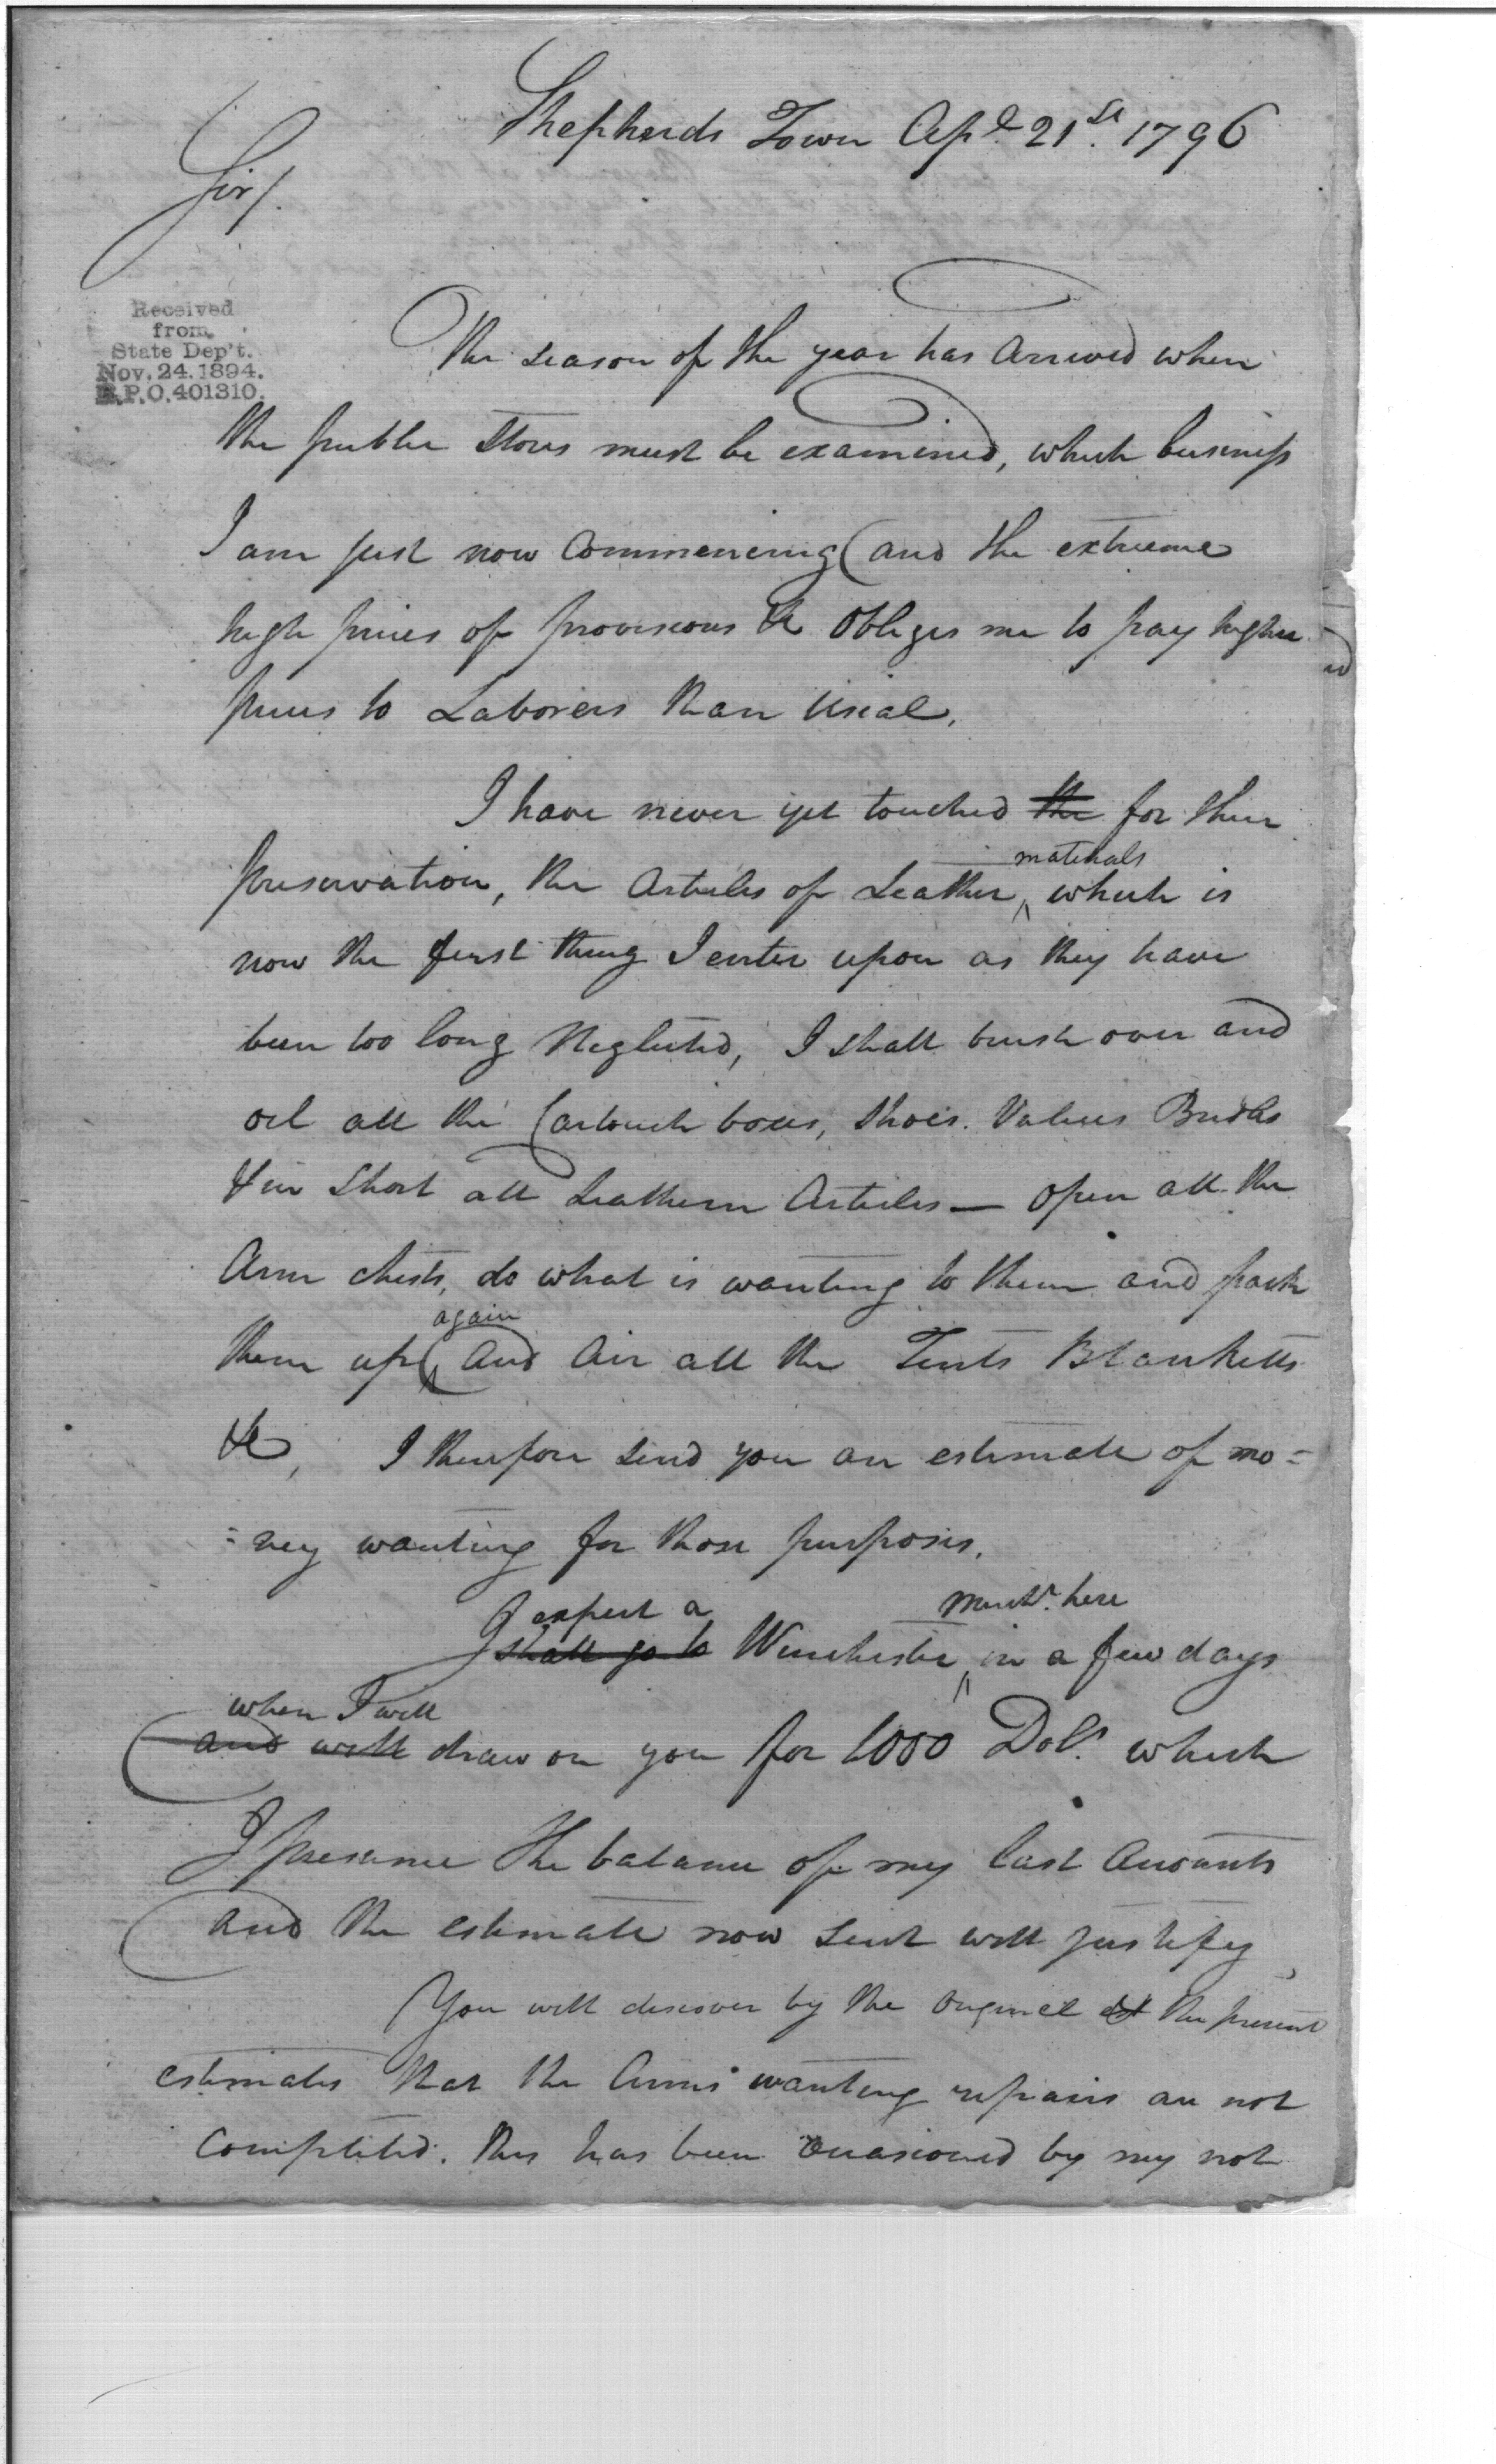 Shepherds Town Apl. 21st. 1796
Sir/.
Received
from
State Dep't.
Nov. 24. 1894.
R.P.O. 401310.
The season of the year has Arrived when
the public Stores must be examined, which business
I am just now Commencing (and the extreeme
high prices of provisions &c Obliges me to pay higher
prices to Laborers than Usial.
I have never yet touched the for their
materials
preservation, the Articles of Leather, which is
now the first thing I enter upon as they have
been too long Neglected, I shall brush over and
oil all the Cartouch boxes, Shoes. Valises Bridles
& in Short all Leathern Articles — Open all the
Arm chests, do what is wanting to them and pack
again
them up (And Air all the Tents Blanketts
&c, I therefore send you an estimate of mo=
=ney wanting for those purposes.
expect a mercht. here
I shall go to Winchester in a few days
when I will
and will draw on you for 1000 Dols. which
I presume the balance of my last Accounts
and the estimate now sent will justify
You will discover by the Original & the present
estimates that the Arms wanting repairs are not
Completed. this has been Occasioned by my not